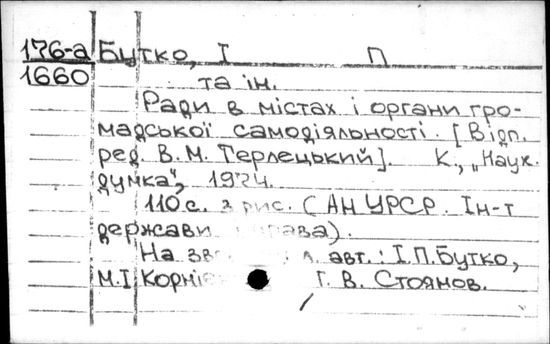 176-а Бутко, І П
1660 та ін.
Ради в містах і органи гро-
мадської самодіяльності. [Відп.
ред. В. М. Терлецький]. К., „Наук.
думка",
110 с. з рис. (АН УРСР. Ін-т
держави
На авт.: І.П.Бутко,
М.І Г. В. Стоянов.